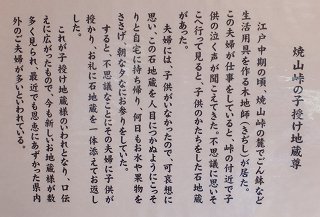 焼山峠の子授け地蔵尊
江戸中期の頃、焼山峠の麓でごん鉢など
生活用具を作る木地師(きぢし)が居た。
この夫婦が仕事をしていると、峠の付近で子
供の泣く声が聞こえてきた。不思議に思いそ
こへ行って見ると、子供のかたちをした石地蔵
があった。
夫婦には、子供がいなかったので、可哀想に
思い、この石地蔵を人目につかぬようにこっそ
りと自宅に持ち帰り、何日もお水や果物を
ささげ朝な夕なにお参りをしていた。
すると、不思議なことにその夫婦に子供が
授かり、お礼に石地蔵を一体添えてお返し
した。
これが子授け地蔵様のいわれとなり、口伝
えに広がったもので、今も新しいお地蔵様が数
多く見られ、最近でも恩恵にあずかった県内
外のご夫婦が多いといわれている。